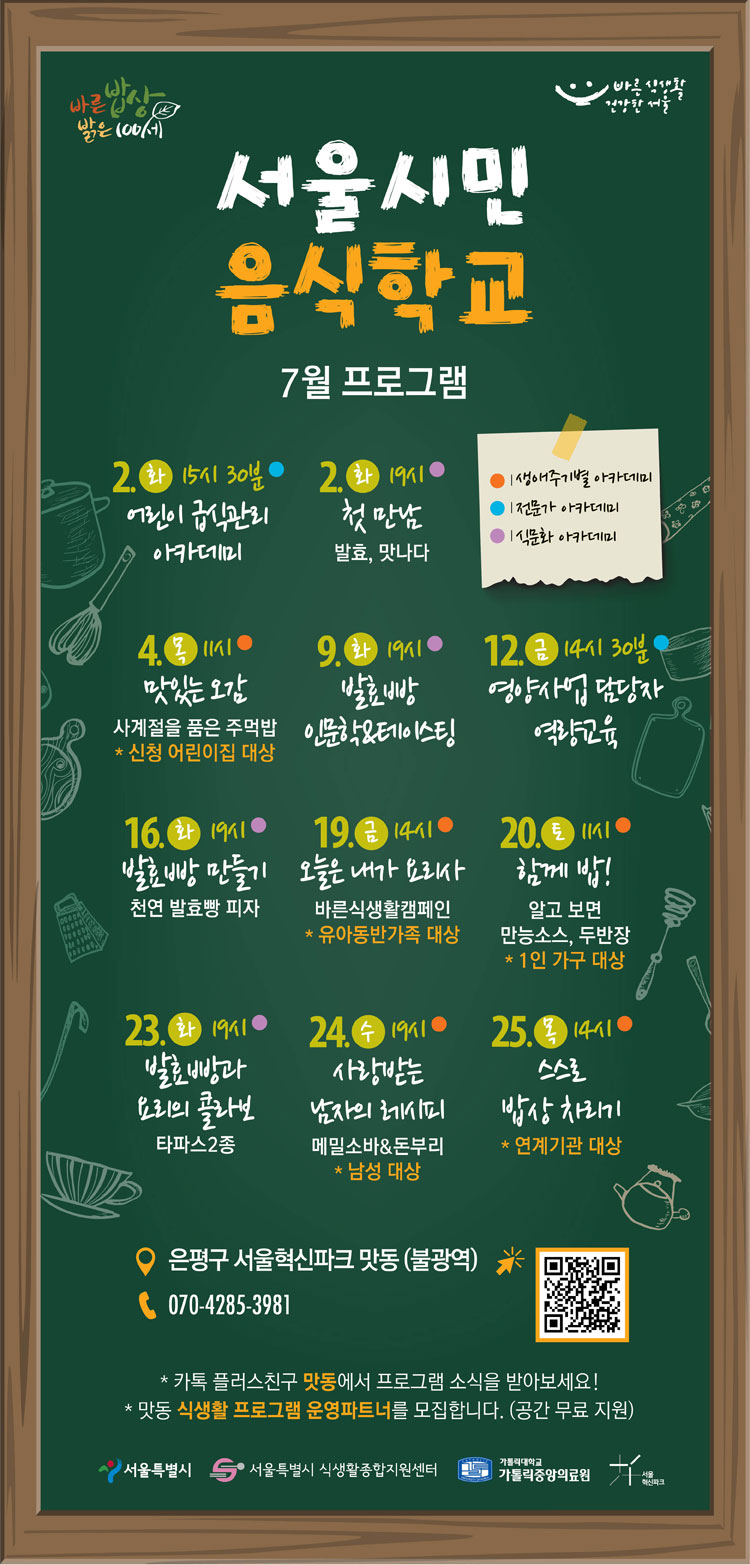 바른 밥상
밝은 100세
바른 식생활
건강한 서울
서울시민
음식학교
7월 프로그램
2. 화 15시 30분
어린이 급식관리
아카데미
2. 화 19시
첫 만남
발효, 맛나다
생애주기별 아카데미
전문가 아카데미
식문화 아카데미
4. 목 11시
맛있는 오감
사계절을 품은 주먹밥
* 신청 어린이집 대상
9. 화 19시
발효빵
인문학&테이스팅
12. 금 14시 30분
영양사업 담당자
역량교육
16. 화 19시
발효빵 만들기
천연 발효빵 피자
19. 금 14시
오늘은 내가 요리사
바른식생활캠페인
* 유아동반가족 대상
20. 토 11시
함께 밥!
알고 보면
만능소스, 두반장
* 1인 가구 대상
23. 화 19시
발효빵과
요리의 콜라보
타파스2종
24. 수 19시
사랑받는
남자의 레시피
메밀소바&돈부리
* 남성 대상
25. 목 14시
스스로
밥상 차리기
* 연계기관 대상
은평구 서울혁신파크 맛동 (불광역)
070-4285-3981
* 카톡 플러스친구 맛동에서 프로그램 소식을 받아보세요!
* 맛동 식생활 프로그램 운영파트너를 모집합니다. (공간 무료 지원)
서울특별시
서울특별시 식생활종합지원센터
가톨릭대학교
가톨릭중앙의료원
서울
혁신파크